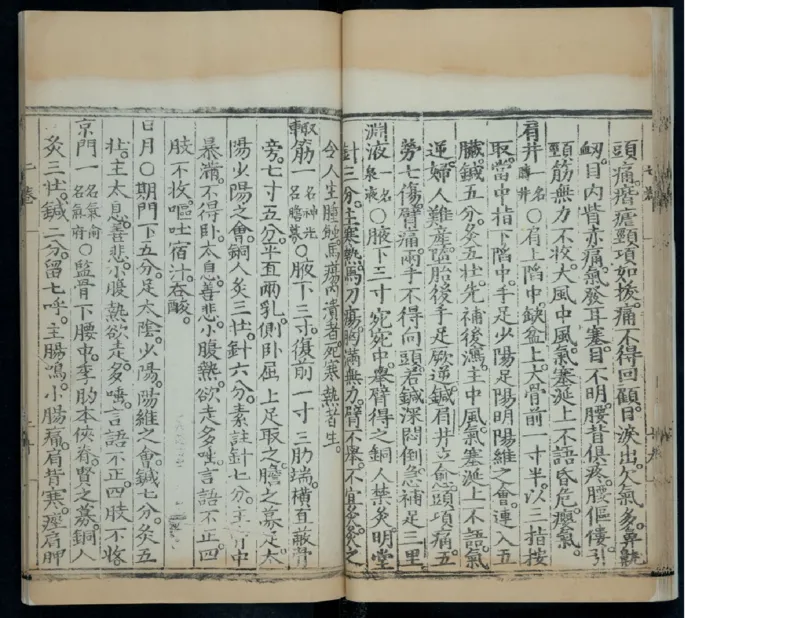 頭痛痎瘧頸項如拔痛不得回顧目淚出欠氣多鼻衄
衂目內眥赤痛氣發耳塞目不明腰背俱疼腰傴僂引
頸筋無力不收大風中風氣塞涎上不語昏危癭氣
肩井一名膊井○肩上陷中缺盆上大骨前一寸半以三指按
取當中指下陷中手足少陽足陽明陽維之會連入五
臟鍼五分灸五壯先補後瀉主中風氣塞涎上不語氣
逆婦人難產墮胎後手足厥逆鍼肩井立愈頭項痛五
勞七傷臂痛兩手不得向頭若鍼深悶倒急補足三里
淵液一名泉液○腋下三寸宛宛中舉臂得之銅人禁灸明堂
針三分主寒熱馬刀瘍胸滿無力臂不舉不宜灸灸之
令人生腫蝕馬瘍內潰者死寒熱者生
輒筋一名神光一名膽募○腋下三寸復前一寸三肋端橫直蔽骨
旁七寸五分平直兩乳側臥屈上足取之膽之募足太
陽少陽之會銅人灸三壯針六分素註針七分主胸中
暴滿不得臥太息善悲小腹熱欲走多唾言語不正四
肢不收嘔吐宿汁吞酸
日月○期門下五分足太陰少陽陽維之會鍼七分灸五
壯主太息善悲小腹熱欲走多唾言語不正四肢不收
京門一名氣俞一名氣府○監骨下腰中季肋本俠脊腎之募銅人
灸三壯鍼二分留七呼主腸鳴小腸痛肩背寒痙肩胛